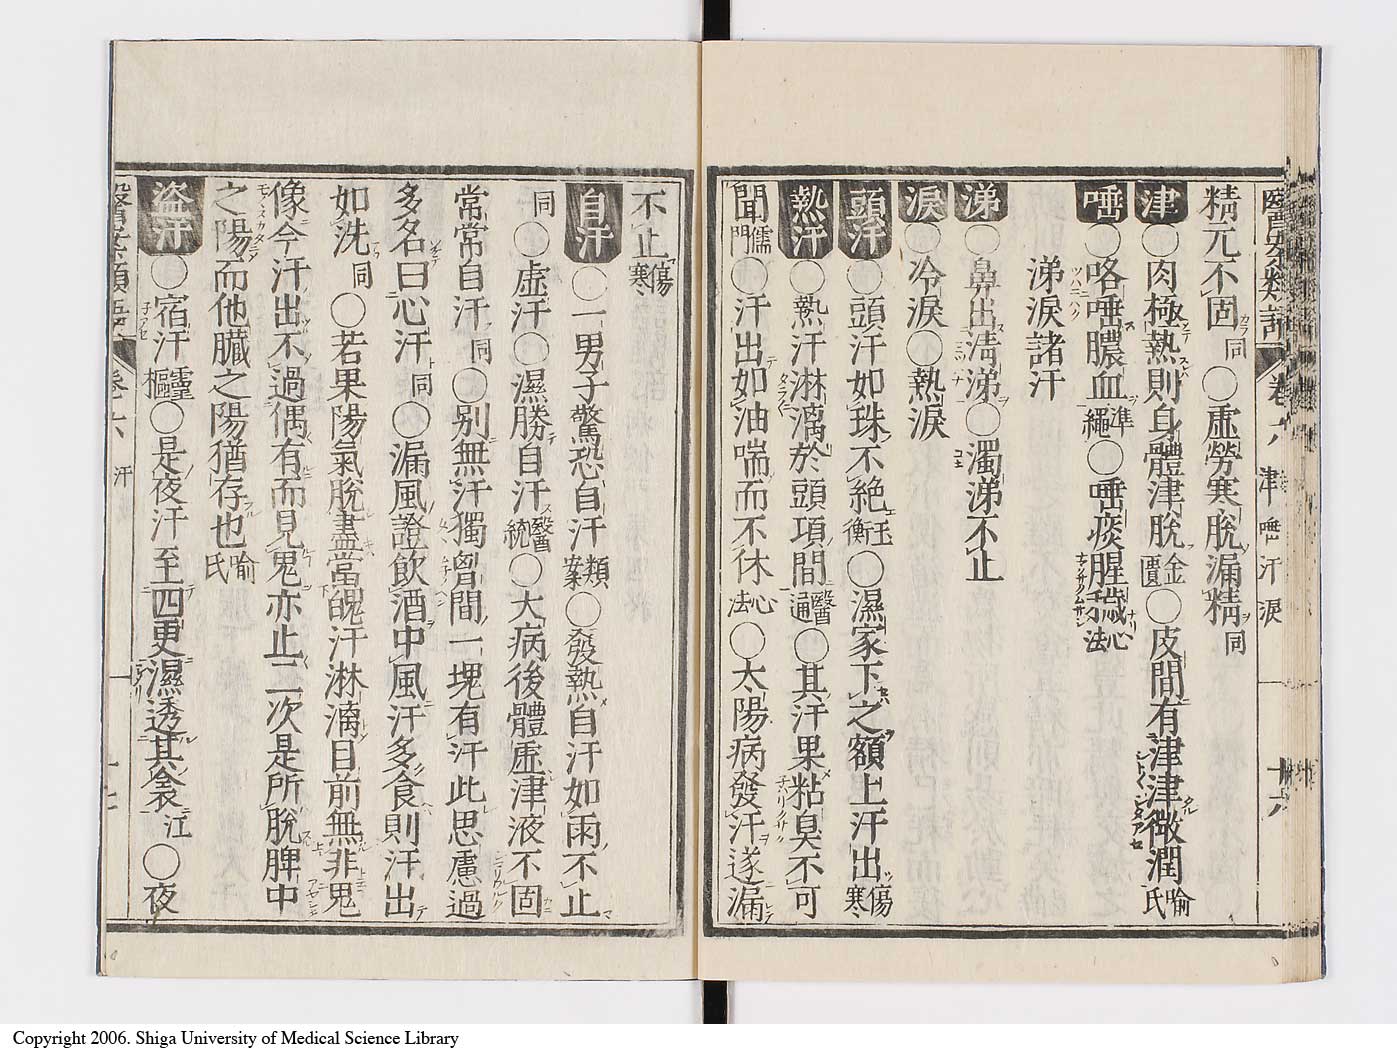 醫案類語 卷六 津唾汗淚 十六
精元不固同〇虛勞寒脫漏精同
津〇肉極熱則身體津脫金匱〇皮間有津津微潤喻氏
唾〇咯唾膿血準繩〇唾痰腥穢心法
涕淚諸汗
涕〇鼻出淸涕〇濁涕不止
淚〇冷淚〇熱淚
頭汗〇頭汗如珠不絕玉衡〇濕家下之額上汗出傷寒
熱汗〇熱汗淋漓於頭項間醫通〇其汗果粘臭不可
聞儒門〇汗出如油喘而不休心法〇太陽病發汗遂漏
不止傷寒
自汗〇一男子驚恐自汗類案〇發熱自汗如雨不止
同〇虛汗〇濕勝自汗醫統〇大病後體虛津液不固
常常自汗同〇別無汗獨胷間一塊有汗此思慮過
多名曰心汗同〇漏風證飮酒中風汗多食則汗出
如洗同〇若果陽氣脫盡當魄汗淋漓目前無非鬼
像今汗出不過偶有而見鬼亦止二次是所脫脾中
之陽而他臟之陽猶存也喻氏
盜汗〇宿汗靈樞〇是夜汗至四更濕透其衾江〇夜
醫案類語 卷六 汗 十七
Copyright 2006. Shiga University of Medical Science Library